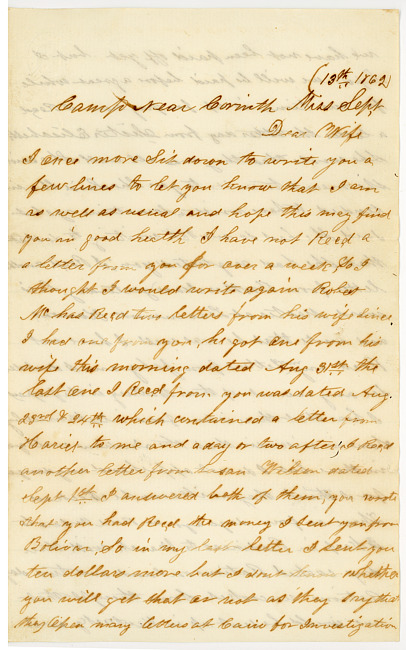 (13th 1862)
Camp Near Corinth Miss Sept
Dear Wife
I once more Sit down to write you a
few lines to let you know that I am
as well as usical and hope this may find
you in good health I have not Recd a
a letter from you for over a week & I
thought I would write again Robert
Mc has Recd two letters from his wife since
I had one from you, he got one from his
wife this morning dated Aug 31st the
last one I Recd from you was dated Aug.
23rd & 24th which contained a letter from
Hariet to me and a day or two after I Recd
another letter from Susan Wilson dated
Sept 1st I answered both of them, you wrote
that you had Recd the money I Sent you from
Bolivar, So in my last letter I Sent you
ten dollars more but I dont know whether
you will get that or not as they say that
they Open many letters at Cairo for Investigation